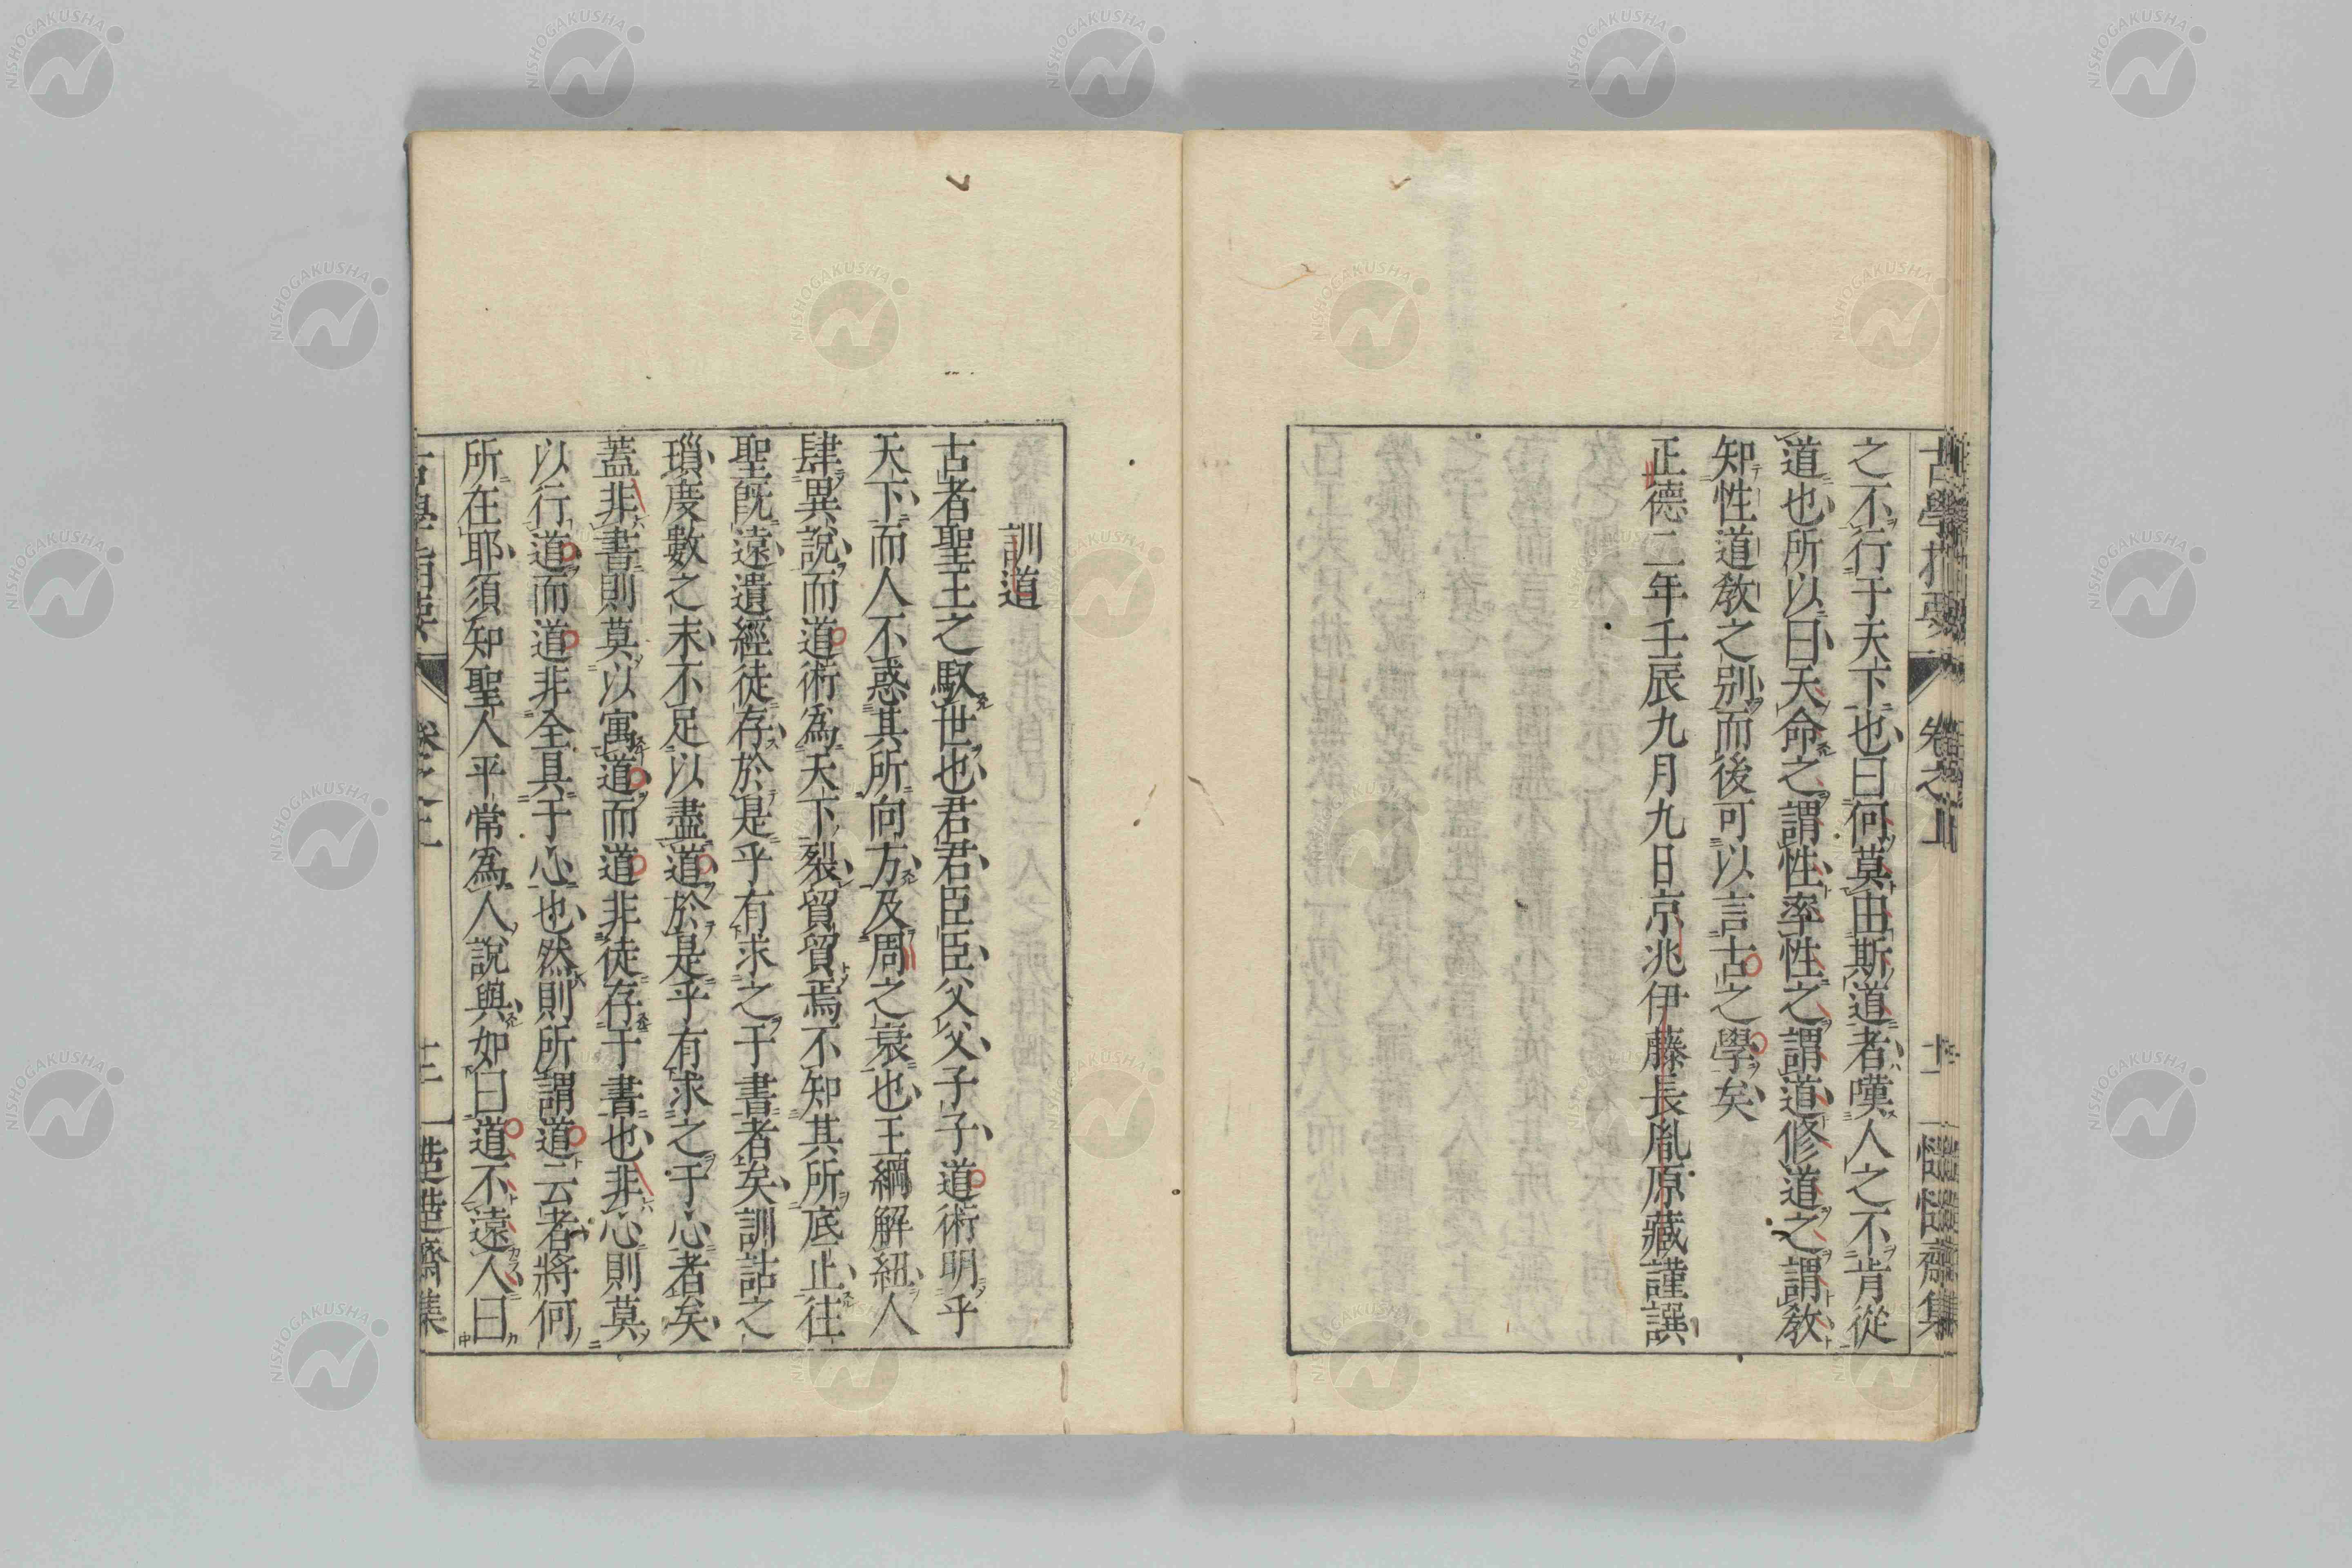 之不行于天下也曰何莫由斯道者嘆人之不肯從
道也所以曰天命之謂性率性之謂道修道之謂敎
知性道敎之別而後可以言古之學矣
正德二年壬辰九月九日京兆伊藤長胤原藏謹譔
訓道
古者聖王之馭世也君君臣臣父父子子道術明乎
天下而人不惑其所向方及周之衰也王綱解紐人
肆異說而道術爲天下裂貿貿焉不知其所底止往
聖旣遠遺經徒存於是乎有求之于書者矣訓詁之
瑣度數之末不足以盡道於是乎有求之于心者矣
蓋非書則莫以寓道而道非徒存于書也非心則莫
以行道而道非全具于心也然則所謂道云者將何
所在耶須知聖人平常爲人說與如曰道不遠人曰
NISHOGAKUSHA